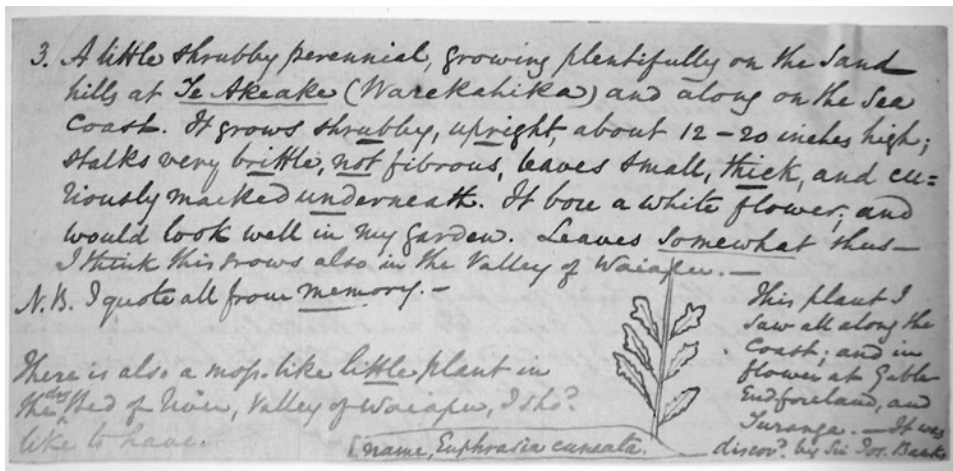 3. A little shrubby perennial, growing plentifully on the Sand
hills at Te Akeake (Warekahika) and along on the Sea
Coast. It grows shrubby, upright, about 12 – 20 inches high;
stalks very brittle, not fibrous, leaves small, thick, and cu=
riously marked underneath. It bore a white flower; and
would look well in my garden. Leaves somewhat thus—
I think this grows also in the Valley of Waiapu. —
N.B. I quote all from memory. –
There is also a moss-like little plant in
the dry Bed of River, Valley of Waiapu, I shod.
like to have.
[name, Euphrasia cuneata.
This plant I
saw all along the
Coast; and in
flower at Gable
End foreland, and
Turanga. — It was
discovd. by Sir Jos. Banks